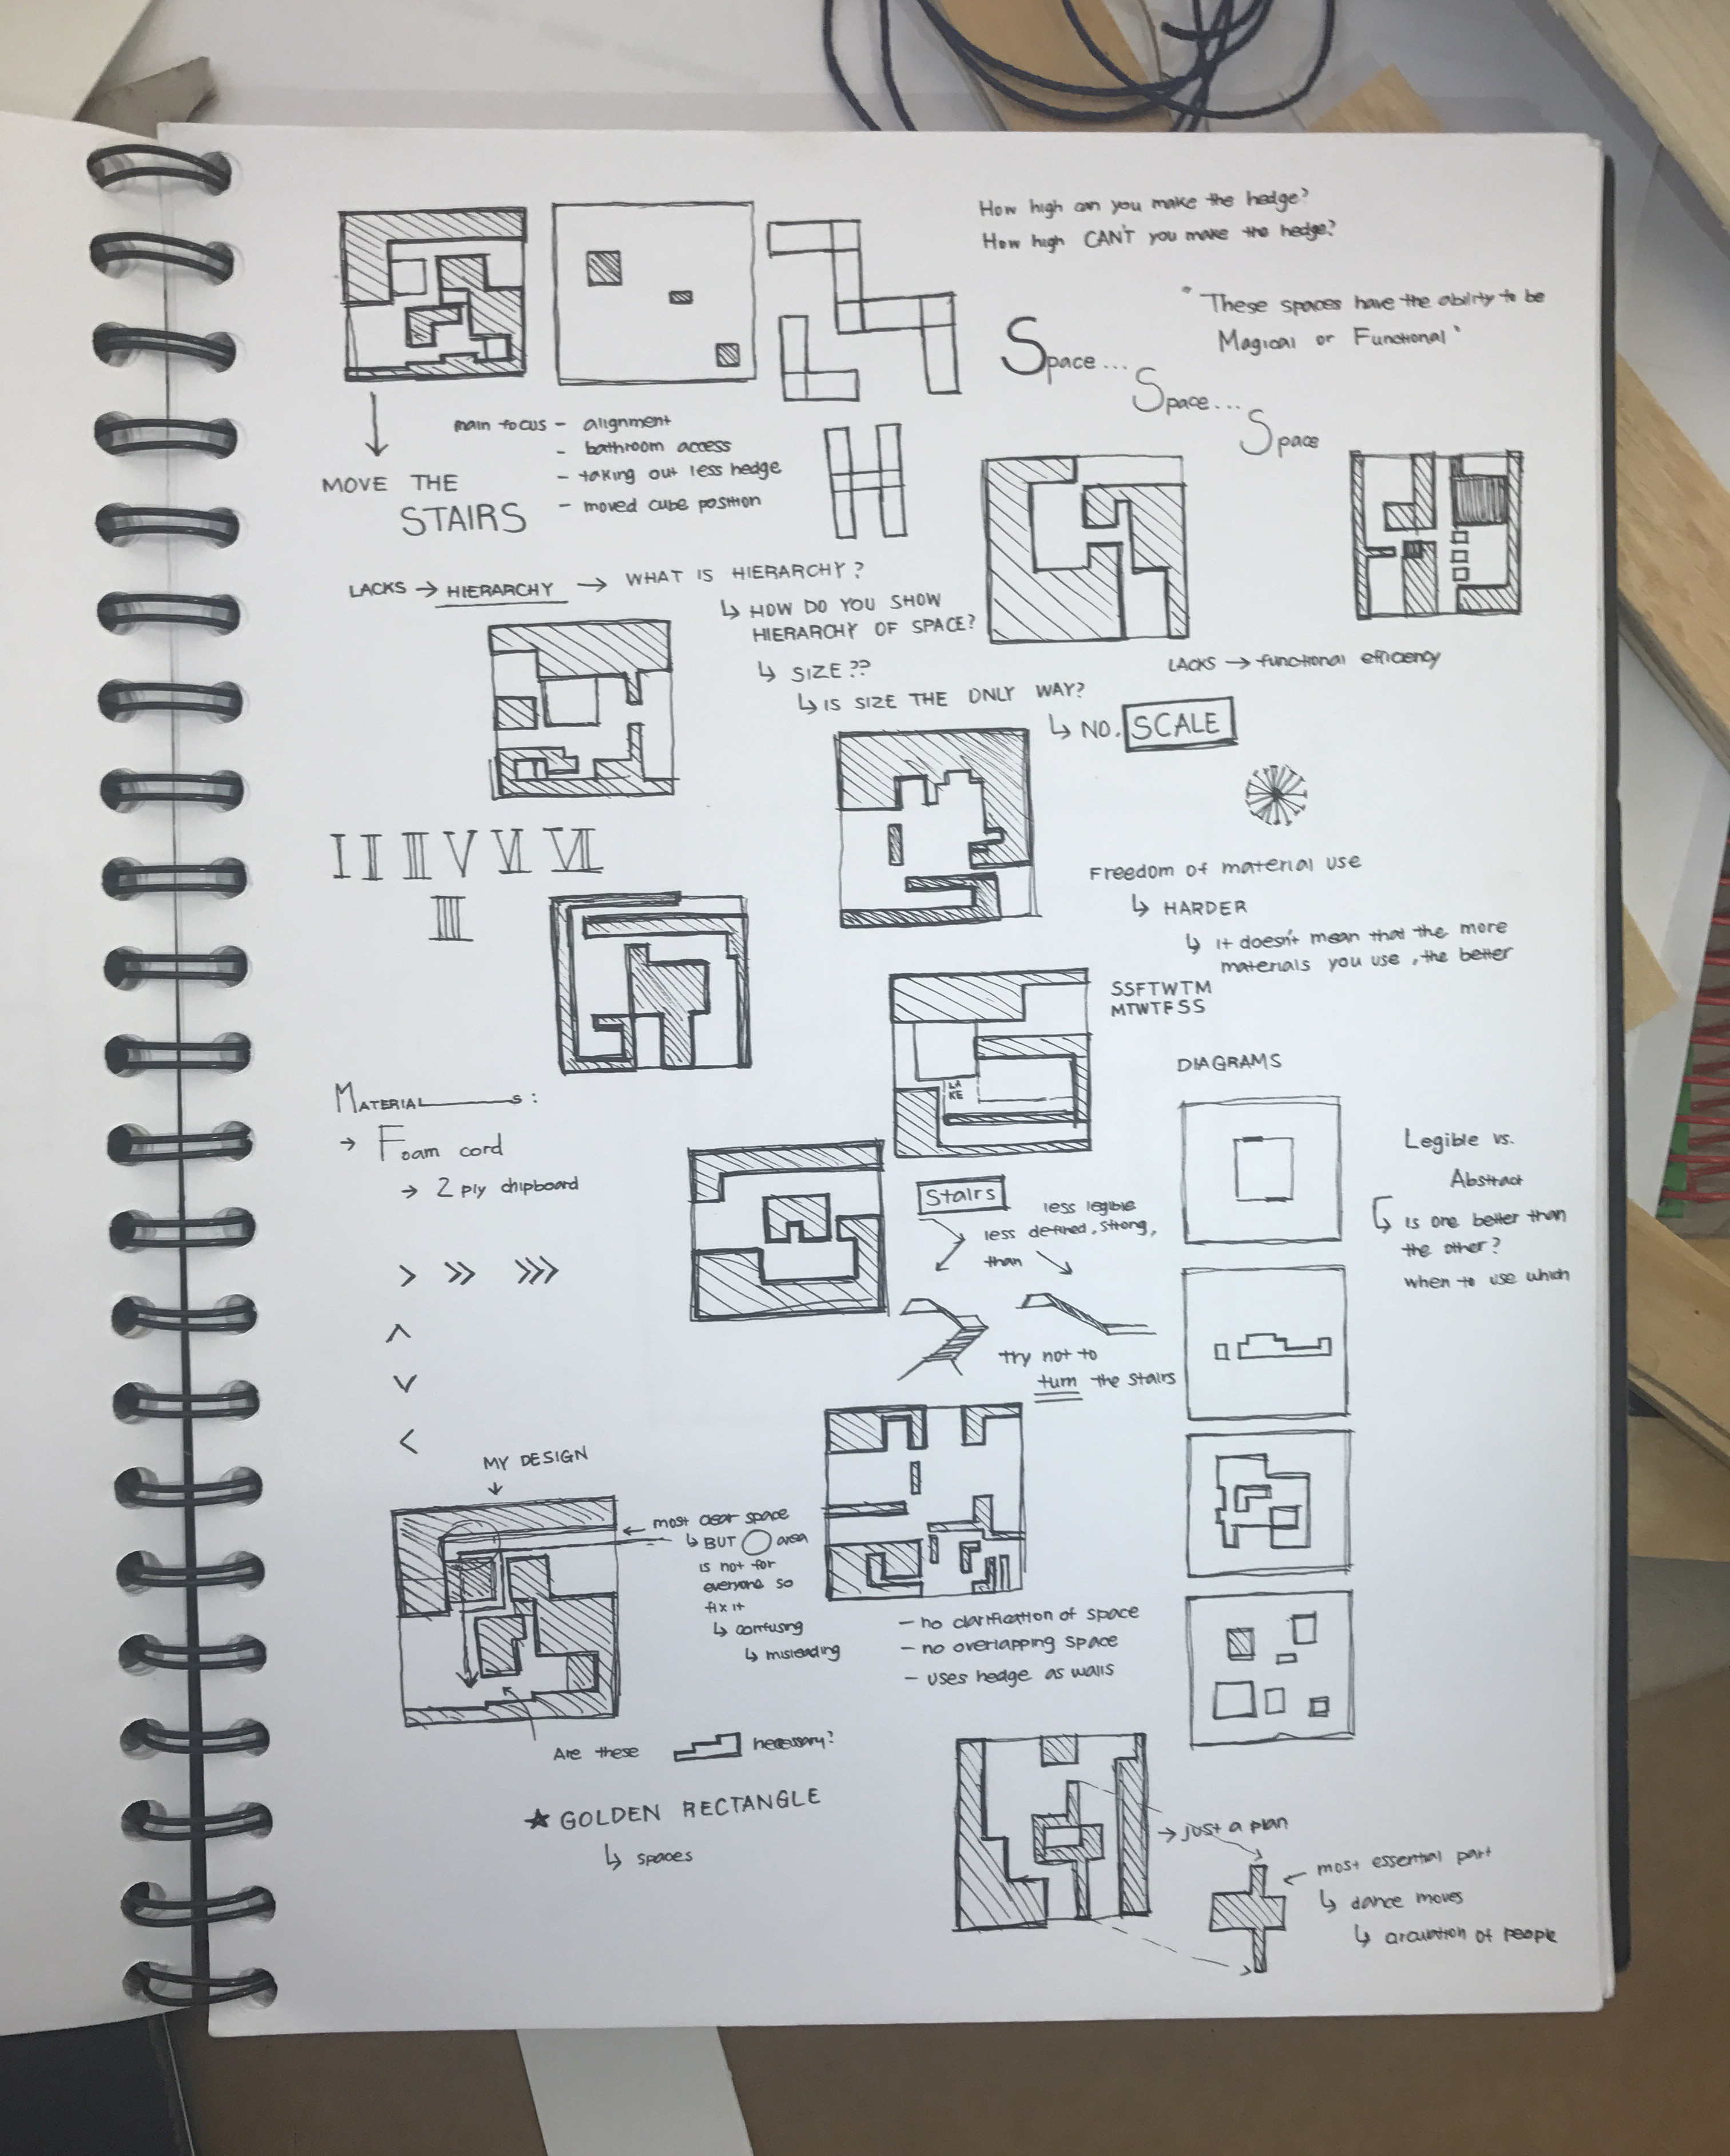 How high can you make the hedge?
How high CAN'T you make the hedge?
"These spaces have the ability to be
Magical or Functional"
Space...
Space...
Space
main focus - alignment
- bathroom access
- taking out less hedge
- moved cube position
MOVE THE
STAIRS
LACKS → HIERARCHY → WHAT IS HIERARCHY?
↳ HOW DO YOU SHOW
HIERARCHY OF SPACE?
↳ SIZE??
↳ IS SIZE THE ONLY WAY?
↳ NO. SCALE
LACKS → functional efficiency
I II III V VI VII
IIII
Freedom of material use
↳ HARDER
↳ it doesn't mean that the more
materials you use, the better
SSFTWTM
MTWTFSS
LA
KE
MATERIALS:
→ Foam cord
→ 2 ply chipboard
> >> >>>
^
v
<
Stairs
less legible
less defined, strong,
than
try not to
turn the stairs
DIAGRAMS
Legible vs.
Abstract
↳ is one better than
the other?
when to use which
MY DESIGN
← most clear space
↳ BUT ◯ area
is not for
everyone so
fix it
↳ confusing
↳ misleading
Are these necessary?
- no clarification of space
- no overlapping space
- uses hedge as walls
★ GOLDEN RECTANGLE
↳ spaces
→ just a plan
← most essential part
↳ dance moves
↳ of people